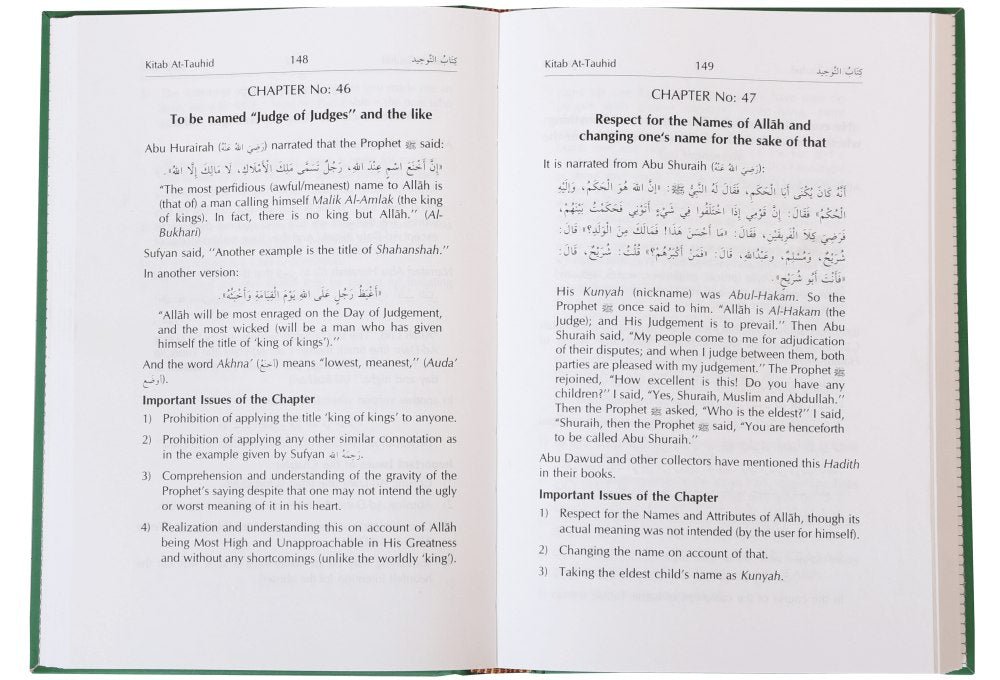 Kitab At-Tauhid 148 كِتَابُ التَّوحِيد
CHAPTER No: 46
To be named “Judge of Judges” and the like
Abu Hurairah (رَضِيَ اللهُ عَنْهُ) narrated that the Prophet ﷺ said:
«إِنَّ أَخْنَعَ اسْمٍ عِنْدَ اللهِ، رَجُلٌ تَسَمَّى مَلِكَ الْأَمْلَاكِ، لَا مَالِكَ إِلَّا اللهُ».
“The most perfidious (awful/meanest) name to Allāh is
(that of) a man calling himself Malik Al-Amlak (the king
of kings). In fact, there is no king but Allāh.” (Al-
Bukhari)
Sufyan said, “Another example is the title of Shahanshah.”
In another version:
«أَغْيَظُ رَجُلٍ عَلَى اللهِ يَوْمَ الْقِيَامَةِ وَأَخْبَثُهُ».
“Allāh will be most enraged on the Day of Judgement,
and the most wicked (will be a man who has given
himself the title of ‘king of kings’).”
And the word Akhna‘ (أخنع) means “lowest, meanest,” (Auda‘
أوضع).
Important Issues of the Chapter
1) Prohibition of applying the title ‘king of kings’ to anyone.
2) Prohibition of applying any other similar connotation as
in the example given by Sufyan رَحِمَهُ الله.
3) Comprehension and understanding of the gravity of the
Prophet’s saying despite that one may not intend the ugly
or worst meaning of it in his heart.
4) Realization and understanding this on account of Allāh
being Most High and Unapproachable in His Greatness
and without any shortcomings (unlike the worldly ‘king’).
Kitab At-Tauhid 149 كِتَابُ التَّوحِيد
CHAPTER No: 47
Respect for the Names of Allāh and
changing one’s name for the sake of that
It is narrated from Abu Shuraih (رَضِيَ اللهُ عَنْهُ):
أَنَّهُ كَانَ يُكْنَى أَبَا الْحَكَمِ، فَقَالَ لَهُ النَّبِيُّ ﷺ: «إِنَّ اللهَ هُوَ الْحَكَمُ، وَإِلَيْهِ
الْحُكْمُ» فَقَالَ: إِنَّ قَوْمِي إِذَا اخْتَلَفُوا فِي شَيْءٍ أَتَوْنِي فَحَكَمْتُ بَيْنَهُمْ،
فَرَضِيَ كِلَا الْفَرِيقَيْنِ، فَقَالَ: «مَا أَحْسَنَ هَذَا! فَمَالَكَ مِنَ الْوَلَدِ؟» قَالَ:
شُرَيْحٌ، وَمُسْلِمٌ، وَعَبْدُاللهِ، قَالَ: «فَمَنْ أَكْبَرُهُمْ؟» قُلْتُ: شُرَيْحٌ، قَالَ:
«فَأَنْتَ أَبُو شُرَيْحٍ».
His Kunyah (nickname) was Abul-Hakam. So the
Prophet ﷺ once said to him. “Allāh is Al-Hakam (the
Judge); and His Judgement is to prevail.” Then Abu
Shuraih said, “My people come to me for adjudication
of their disputes; and when I judge between them, both
parties are pleased with my judgement.” The Prophet ﷺ
rejoined, “How excellent is this! Do you have any
children?” I said, “Yes, Shuraih, Muslim and Abdullah.”
Then the Prophet ﷺ asked, “Who is the eldest?” I said,
“Shuraih, then the Prophet ﷺ said, “You are henceforth
to be called Abu Shuraih.”
Abu Dawud and other collectors have mentioned this Hadith
in their books.
Important Issues of the Chapter
1) Respect for the Names and Attributes of Allāh, though its
actual meaning was not intended (by the user for himself).
2) Changing the name on account of that.
3) Taking the eldest child’s name as Kunyah.